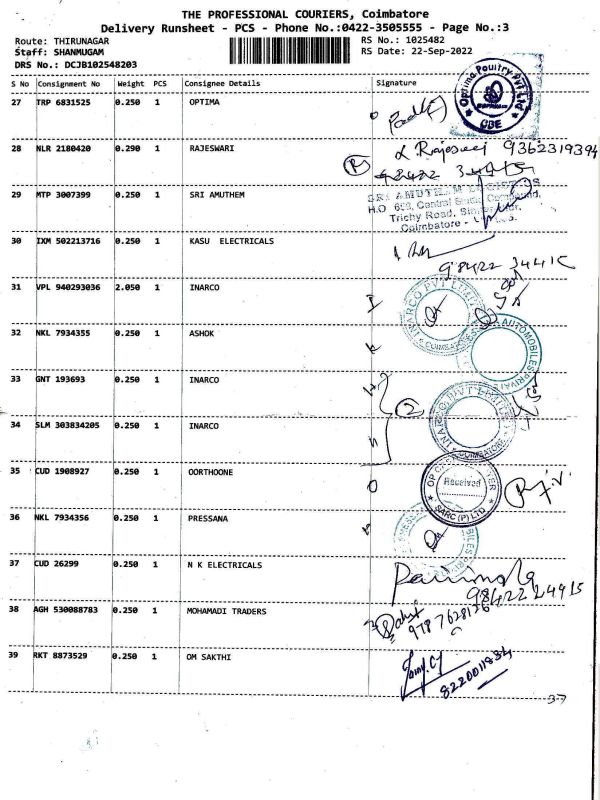 THE PROFESSIONAL COURIERS, Coimbatore
Delivery Runsheet - PCS - Phone No.:0422-3505555 - Page No.:3
Route: THIRUNAGAR RS No.: 1025482
Staff: SHANMUGAM RS Date: 22-Sep-2022
DRS No.: DCJB102548203
S No Consignment No Weight PCS Consignee Details Signature
27 TRP 6831525 0.250 1 OPTIMA
Optima Poultry Pvt Ltd
CBE
28 NLR 2180420 0.290 1 RAJESWARI
Rajeswari 9362319394
29 MTP 3007399 0.250 1 SRI AMUTHEM
H.O 659, Central Studio Compound,
Trichy Road,
Coimbatore -
30 IXM 502213716 0.250 1 KASU ELECTRICALS
98422 3441
31 VPL 940293036 2.050 1 INARCO
INARCO PVT LIMITED
COIMBATORE
32 NKL 7934355 0.250 1 ASHOK
AUTOMOBILES PRIVATE
33 GNT 193693 0.250 1 INARCO
2
34 SLM 303834205 0.250 1 INARCO
INARCO PVT LIMITED
COIMBATORE
35 CUD 1908927 0.250 1 OORTHOONE
Received
SARC (P) LTD
36 NKL 7934356 0.250 1 PRESSANA
37 CUD 26299 0.250 1 N K ELECTRICALS
9842224915
38 AGH 530088783 0.250 1 MOHAMADI TRADERS
9787628126
39 RKT 8873529 0.250 1 OM SAKTHI
8220011834
37